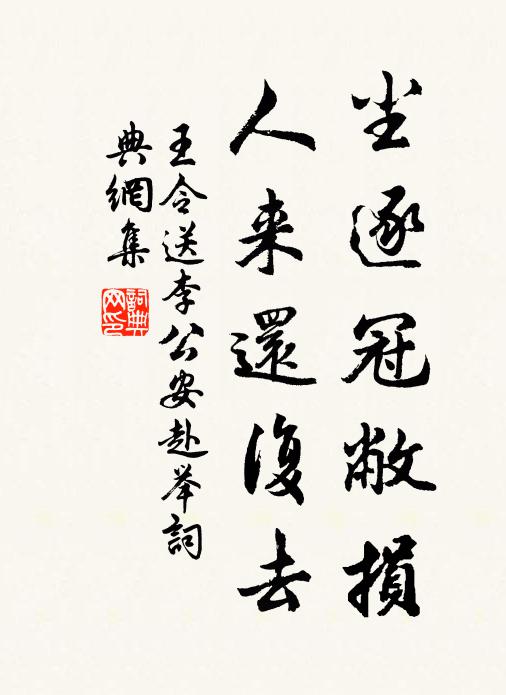 尘逐冠敝損
人来還復去
王令送李公安赴举詞
典網集
詞典
网印